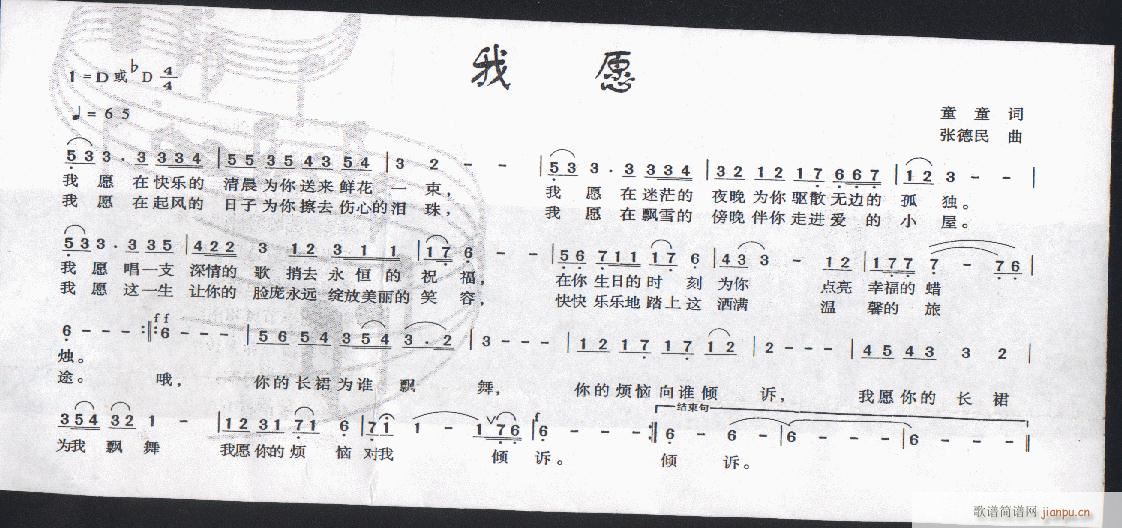 我愿
1=D或♭D 4/4
♩=65
童童 词
张德民 曲
5 3 3 · 3 3 3 4 | 5 5 3 5 4 3 5 4 | 3 2 - - | 5 3 3 · 3 3 3 4 | 3 2 1 2 1 7 6 6 7 | 1 2 3 - - |
我愿在快乐的 清晨为你送来鲜花一束， 我愿在迷茫的 夜晚为你驱散无边的孤独。
我愿在起风的 日子为你擦去伤心的泪珠， 我愿在飘雪的 傍晚伴你走进爱的小屋。
5 3 3 · 3 3 5 | 4 2 2 3 1 2 3 1 1 | 1 7 6 - - | 5 6 7 1 1 1 7 6 | 4 3 3 - 1 2 | 1 7 7 7 - 7 6 |
我愿唱一支 深情的歌捎去永恒的祝福， 在你生日的时刻为你 点亮幸福的蜡
我愿这一生 让你的脸庞永远绽放美丽的笑容， 快快乐乐地踏上这洒满 温馨的旅
ff
6 - - - :‖: 6 - - - | 5 6 5 4 3 5 4 3 · 2 | 3 - - - | 1 2 1 7 1 7 1 2 | 2 - - - | 4 5 4 3 3 2 |
烛。
途。 哦， 你的长裙为谁飘舞， 你的烦恼向谁倾诉， 我愿你的长裙
结束句
3 5 4 3 2 1 - | 1 2 3 1 7 1 6 | 7 1 1 - 1 7 6 | f 6 - - - :‖ 6 - 6 - | 6 - - - | 6 - - - ‖
为我飘舞 我愿你的烦恼对我倾诉。 倾诉。
歌谱简谱网 jianpu.cn